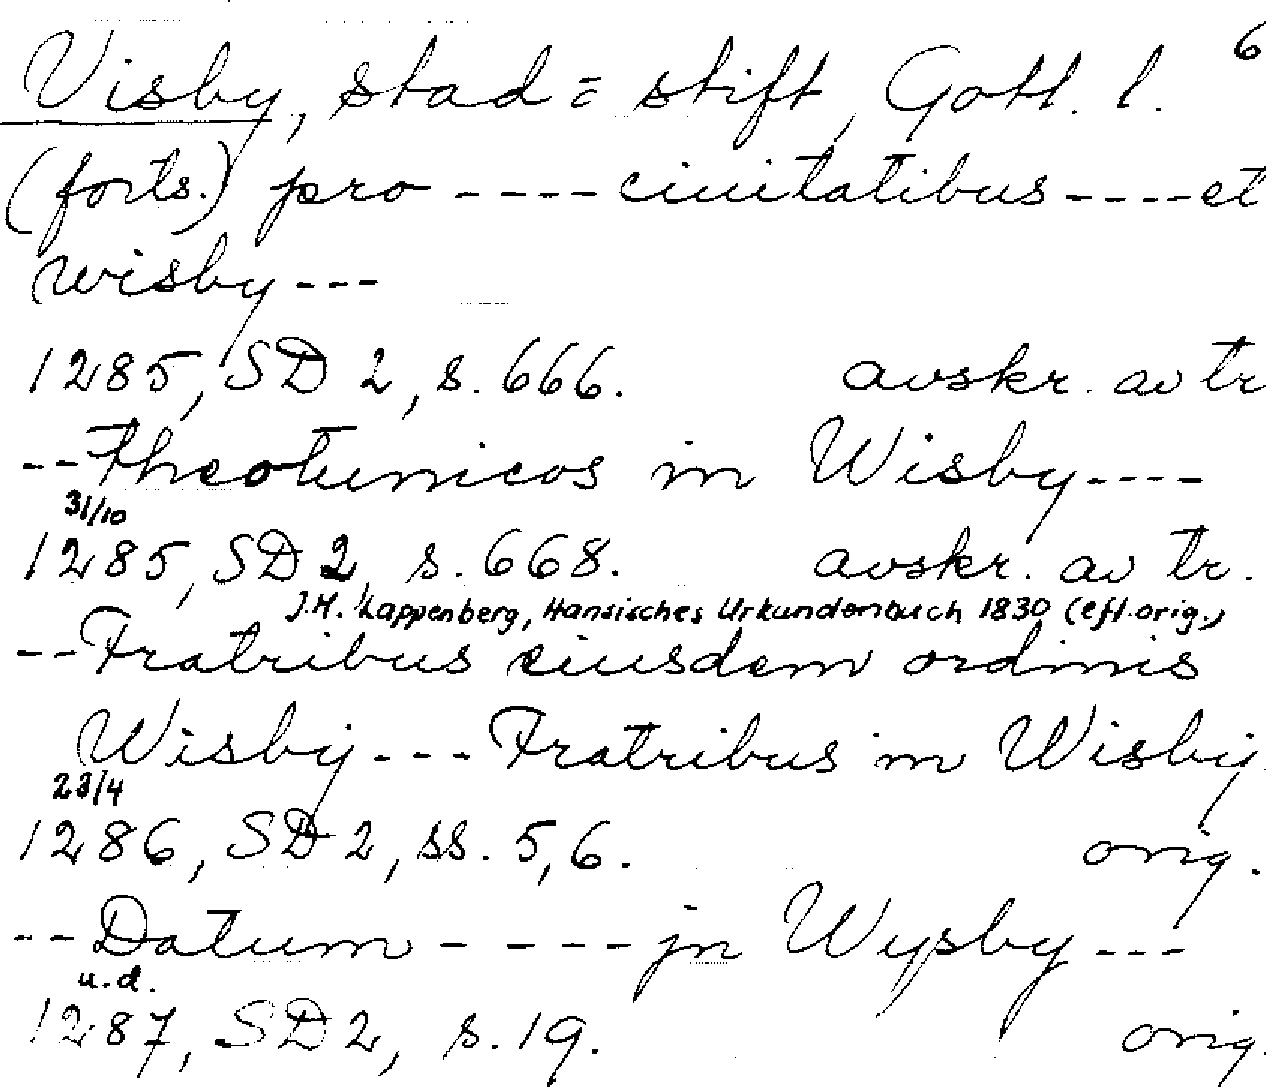 6
Visby, stad = stift, Gotl. l.
(forts.) pro ---- ciuitatibus ---- et
wisby ---
1285, SD 2, s. 666. avskr. av tr
-- Theotunicos in Wisby ----
31/10
1285, SD 2, s. 668. avskr. av tr.
J.M. Lappenberg, Hansisches Urkundenbuch 1830 (eft. orig.)
-- Fratribus eiusdem ordinis
Wisby --- Fratribus in Wisby
23/4
1286, SD 2, ss. 5,6. orig.
-- Datum - - - - jn Wysby ---
u.d.
1287, SD 2, s. 19. orig.